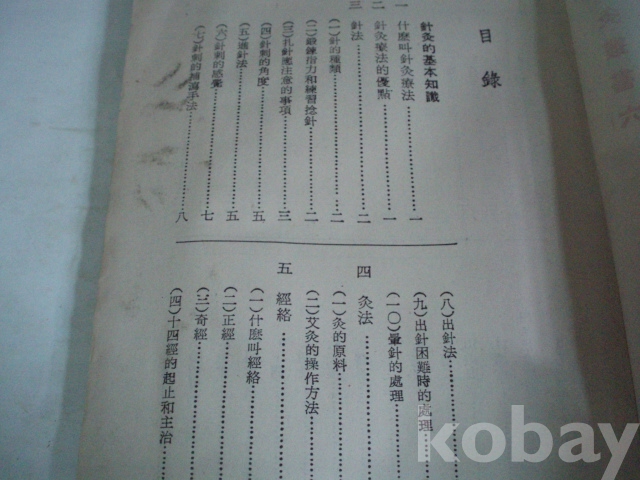 目錄
針灸的基本知識
一 什麼叫針灸療法……一
二 針灸療法的優點……一
三 針法……二
(一)針的種類……二
(二)鍛鍊指力和練習捻針……二
(三)扎針應注意的事項……三
(四)針刺的角度……五
(五)進針法……五
(六)針刺的感覺……七
(七)針刺的補瀉手法……八
(八)出針法……
(九)出針困難時的處理……
(一〇)暈針的處理……
四 灸法……
(一)灸的原料……
(二)艾灸的操作方法……
五 經絡……
(一)什麼叫經絡……
(二)正經……
(三)奇經……
(四)十四經的起止和主治……
kobay